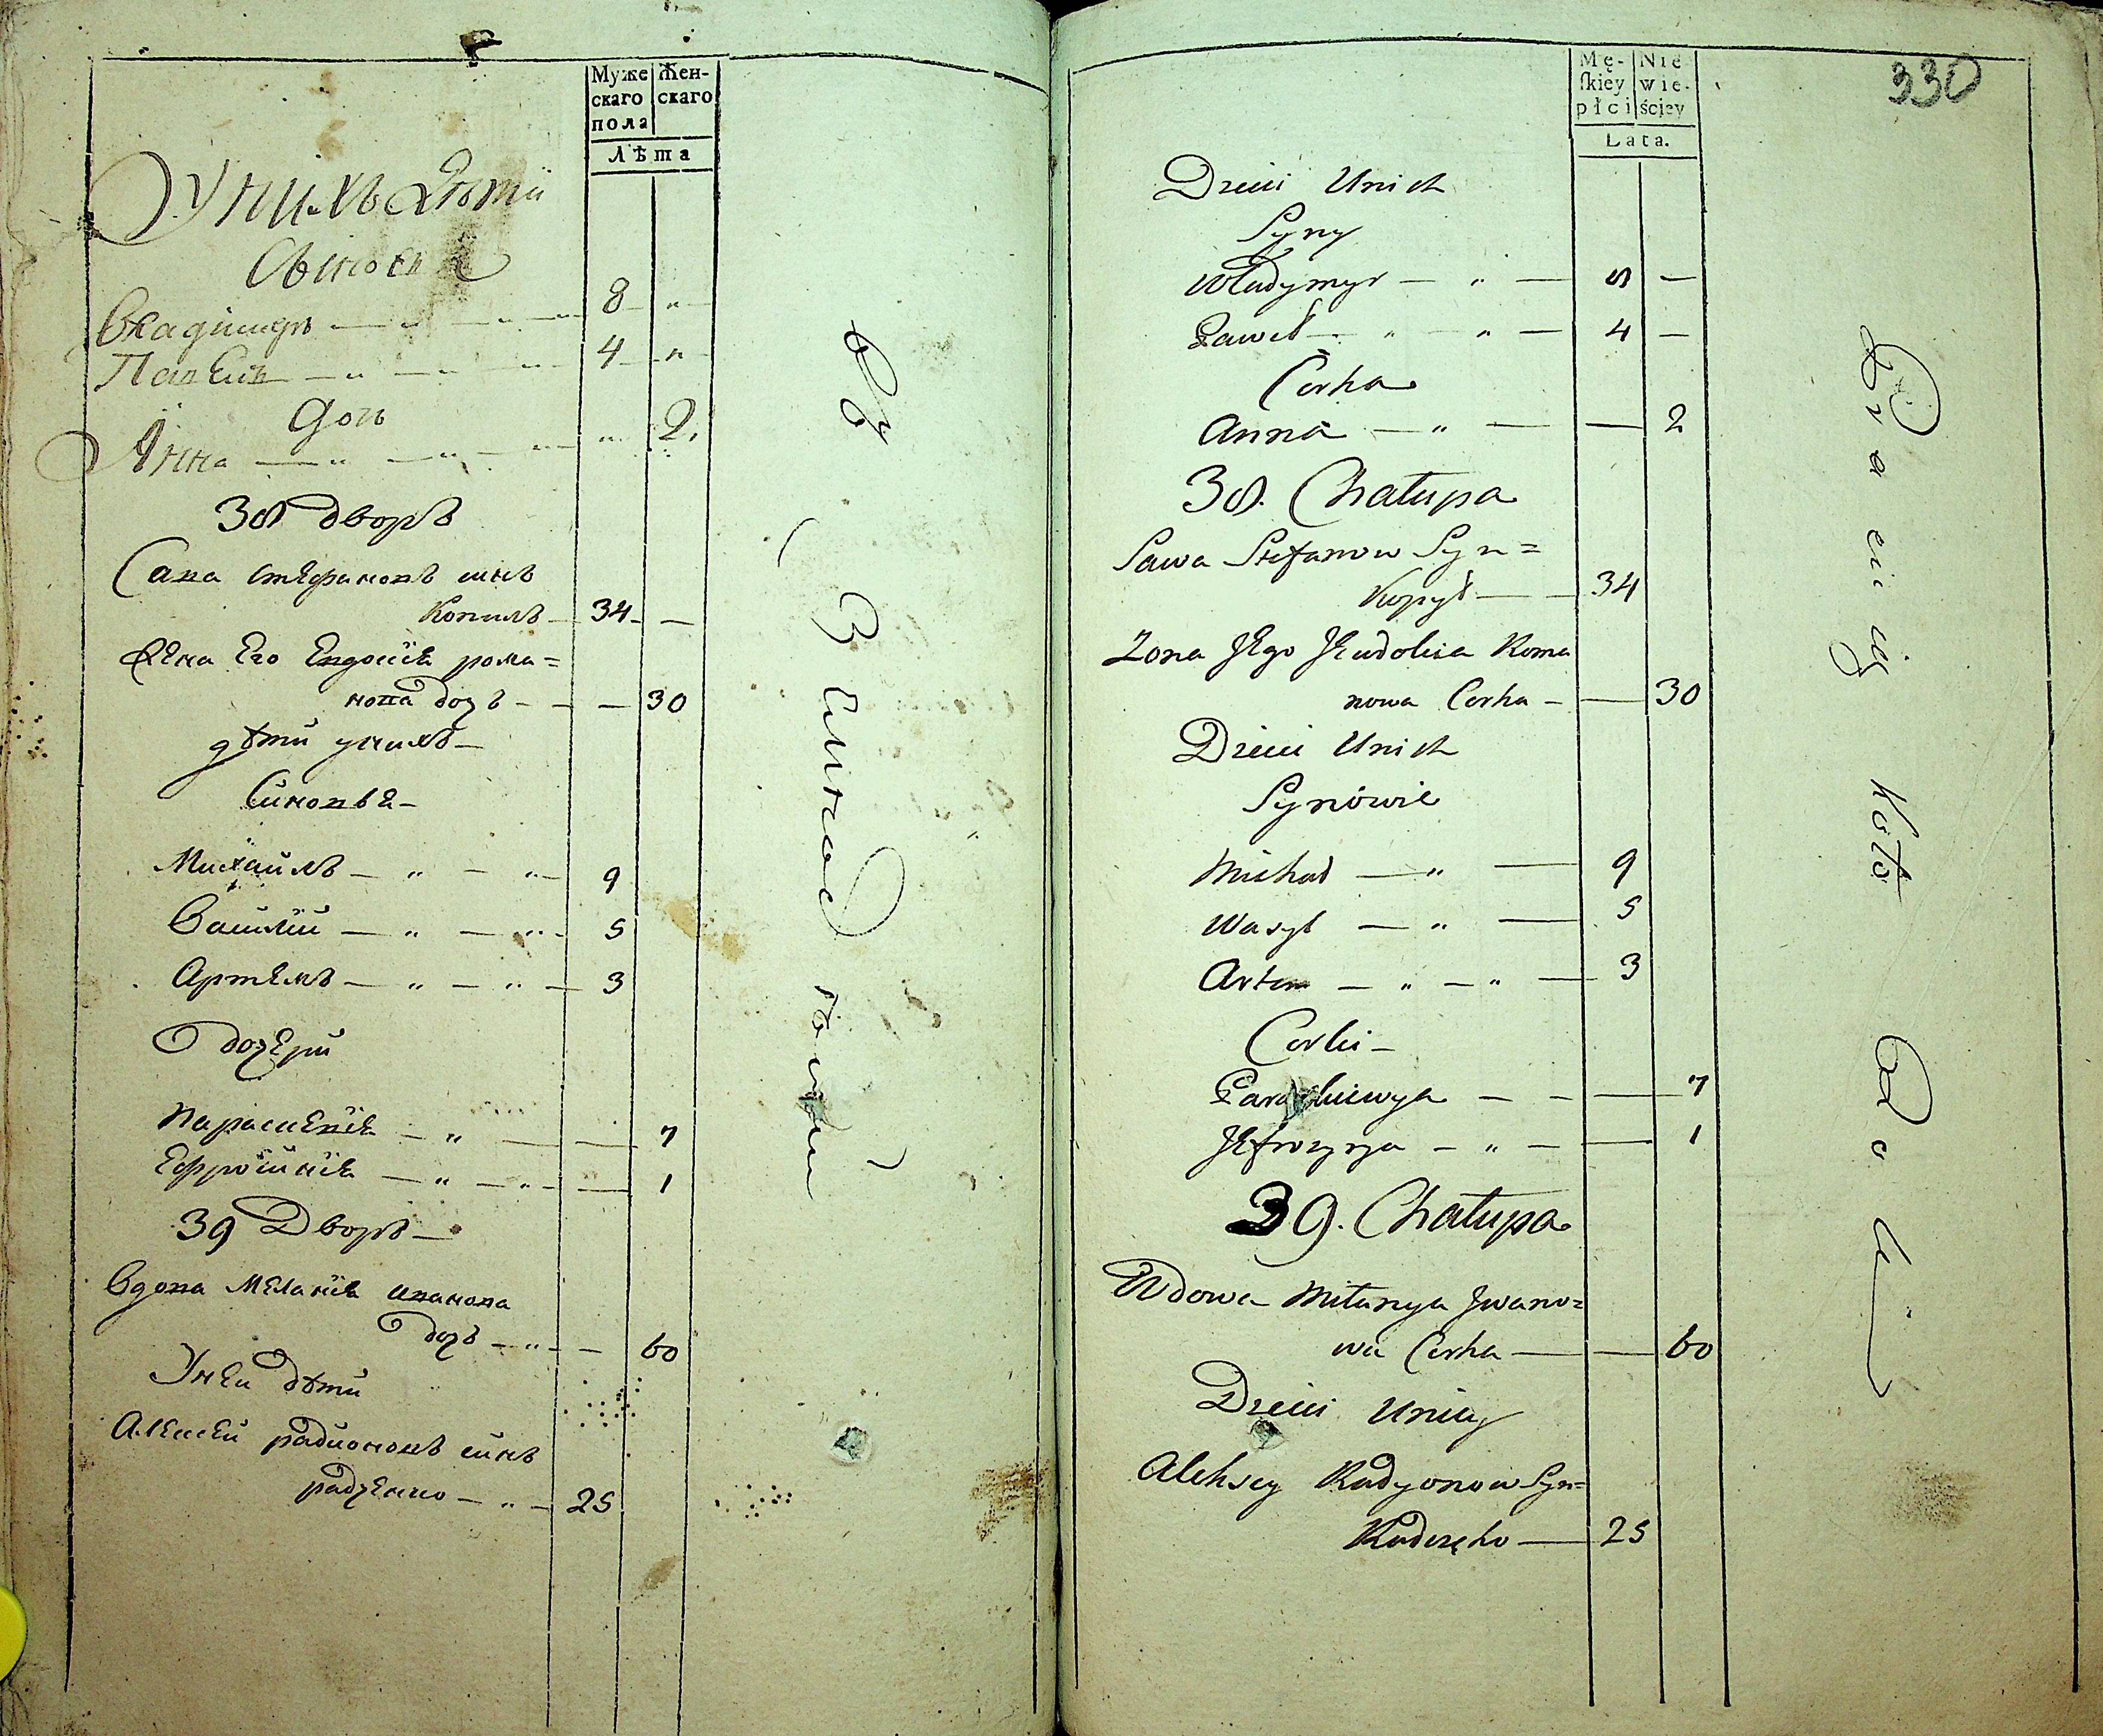 Муже
скаго
пола
Жен-
скаго
Лѣта
Унихъ Дѣти
Синове
Владимиръ — „ — „ — 8 — „
Павелъ — „ — „ — 4 — „
Дочь
Анна — „ — „ — „ 2.
38 дворъ
Сава Стефановъ синъ
Копилъ — 34 — —
Жена Его Евдокія рома=
нова дочь — — — 30
дѣти унихъ —
Синовья —
Михаилъ — „ — „ — 9
Василій — „ — „ — 5
Артемъ — „ — „ — 3
дочери
Параскевія — „ — — 7
Ефросинія — „ — „ — — 1
39 Дворъ —
Вдова Меланія иванова
дочь — „ — — 60
Унеи дѣти
Алексей радионовъ синъ
радченко — „ — 25
330
Mę-
skiey
płci
Nie
wie-
ściey
Lata.
Dzieci Unich
Syny
Władymyr — „ — 8 —
Paweł — „ — „ — 4 —
Corka
Anna — „ — — 2
38. Chałupa
Sawa Stefanow Syn =
Kopył — — 34
Zona Jego Jewdokia Roma
nowa Corka — — 30
Dzieci Unich
Synowie
Michał — „ — 9
Wasyl — „ — 5
Artem — „ — „ — 3
Corki —
Paraskiewya — — — 7
Jefrozynya — „ — — 1
39. Chałupa
Wdowa Miłanya Jwano=
wa Corka — — 60
Dzieci Uniey
Aleksey Radyonow Syn=
Radczęko — 25